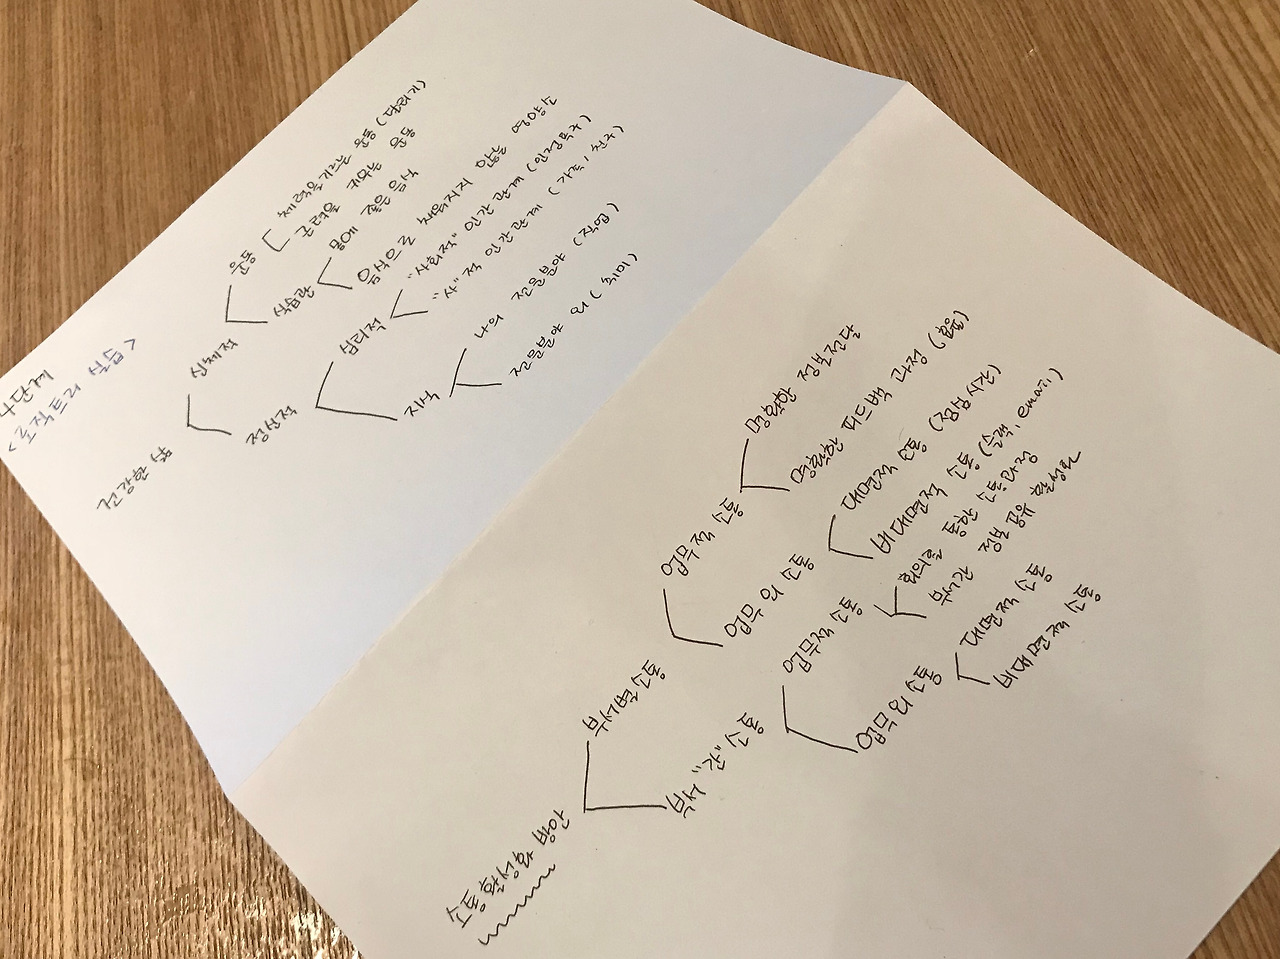 4단계
<로직트리 실습>
건강한 삶
신체적
운동
체력을 기르는 운동 (달리기)
근력을 키우는 운동
식습관
몸에 좋은 음식
음식으로 채워지지 않는 영양소
정신적
심리적
"사회적" 인간관계 (인정욕구)
"사"적 인간관계 (가족, 친구)
지식
나의 전문분야 (직업)
전문분야 외 (취미)
소통 활성화 방안
부서별 소통
업무적 소통
명확한 정보전달
명확한 피드백 과정 (효율)
업무 외 소통
대면적 소통 (점심시간)
비대면적 소통 (슬랙, email)
부서 "간" 소통
업무적 소통
회의를 통한 소통과정
부서간 정보 공유 활성화
업무 외 소통
대면적 소통
비대면적 소통